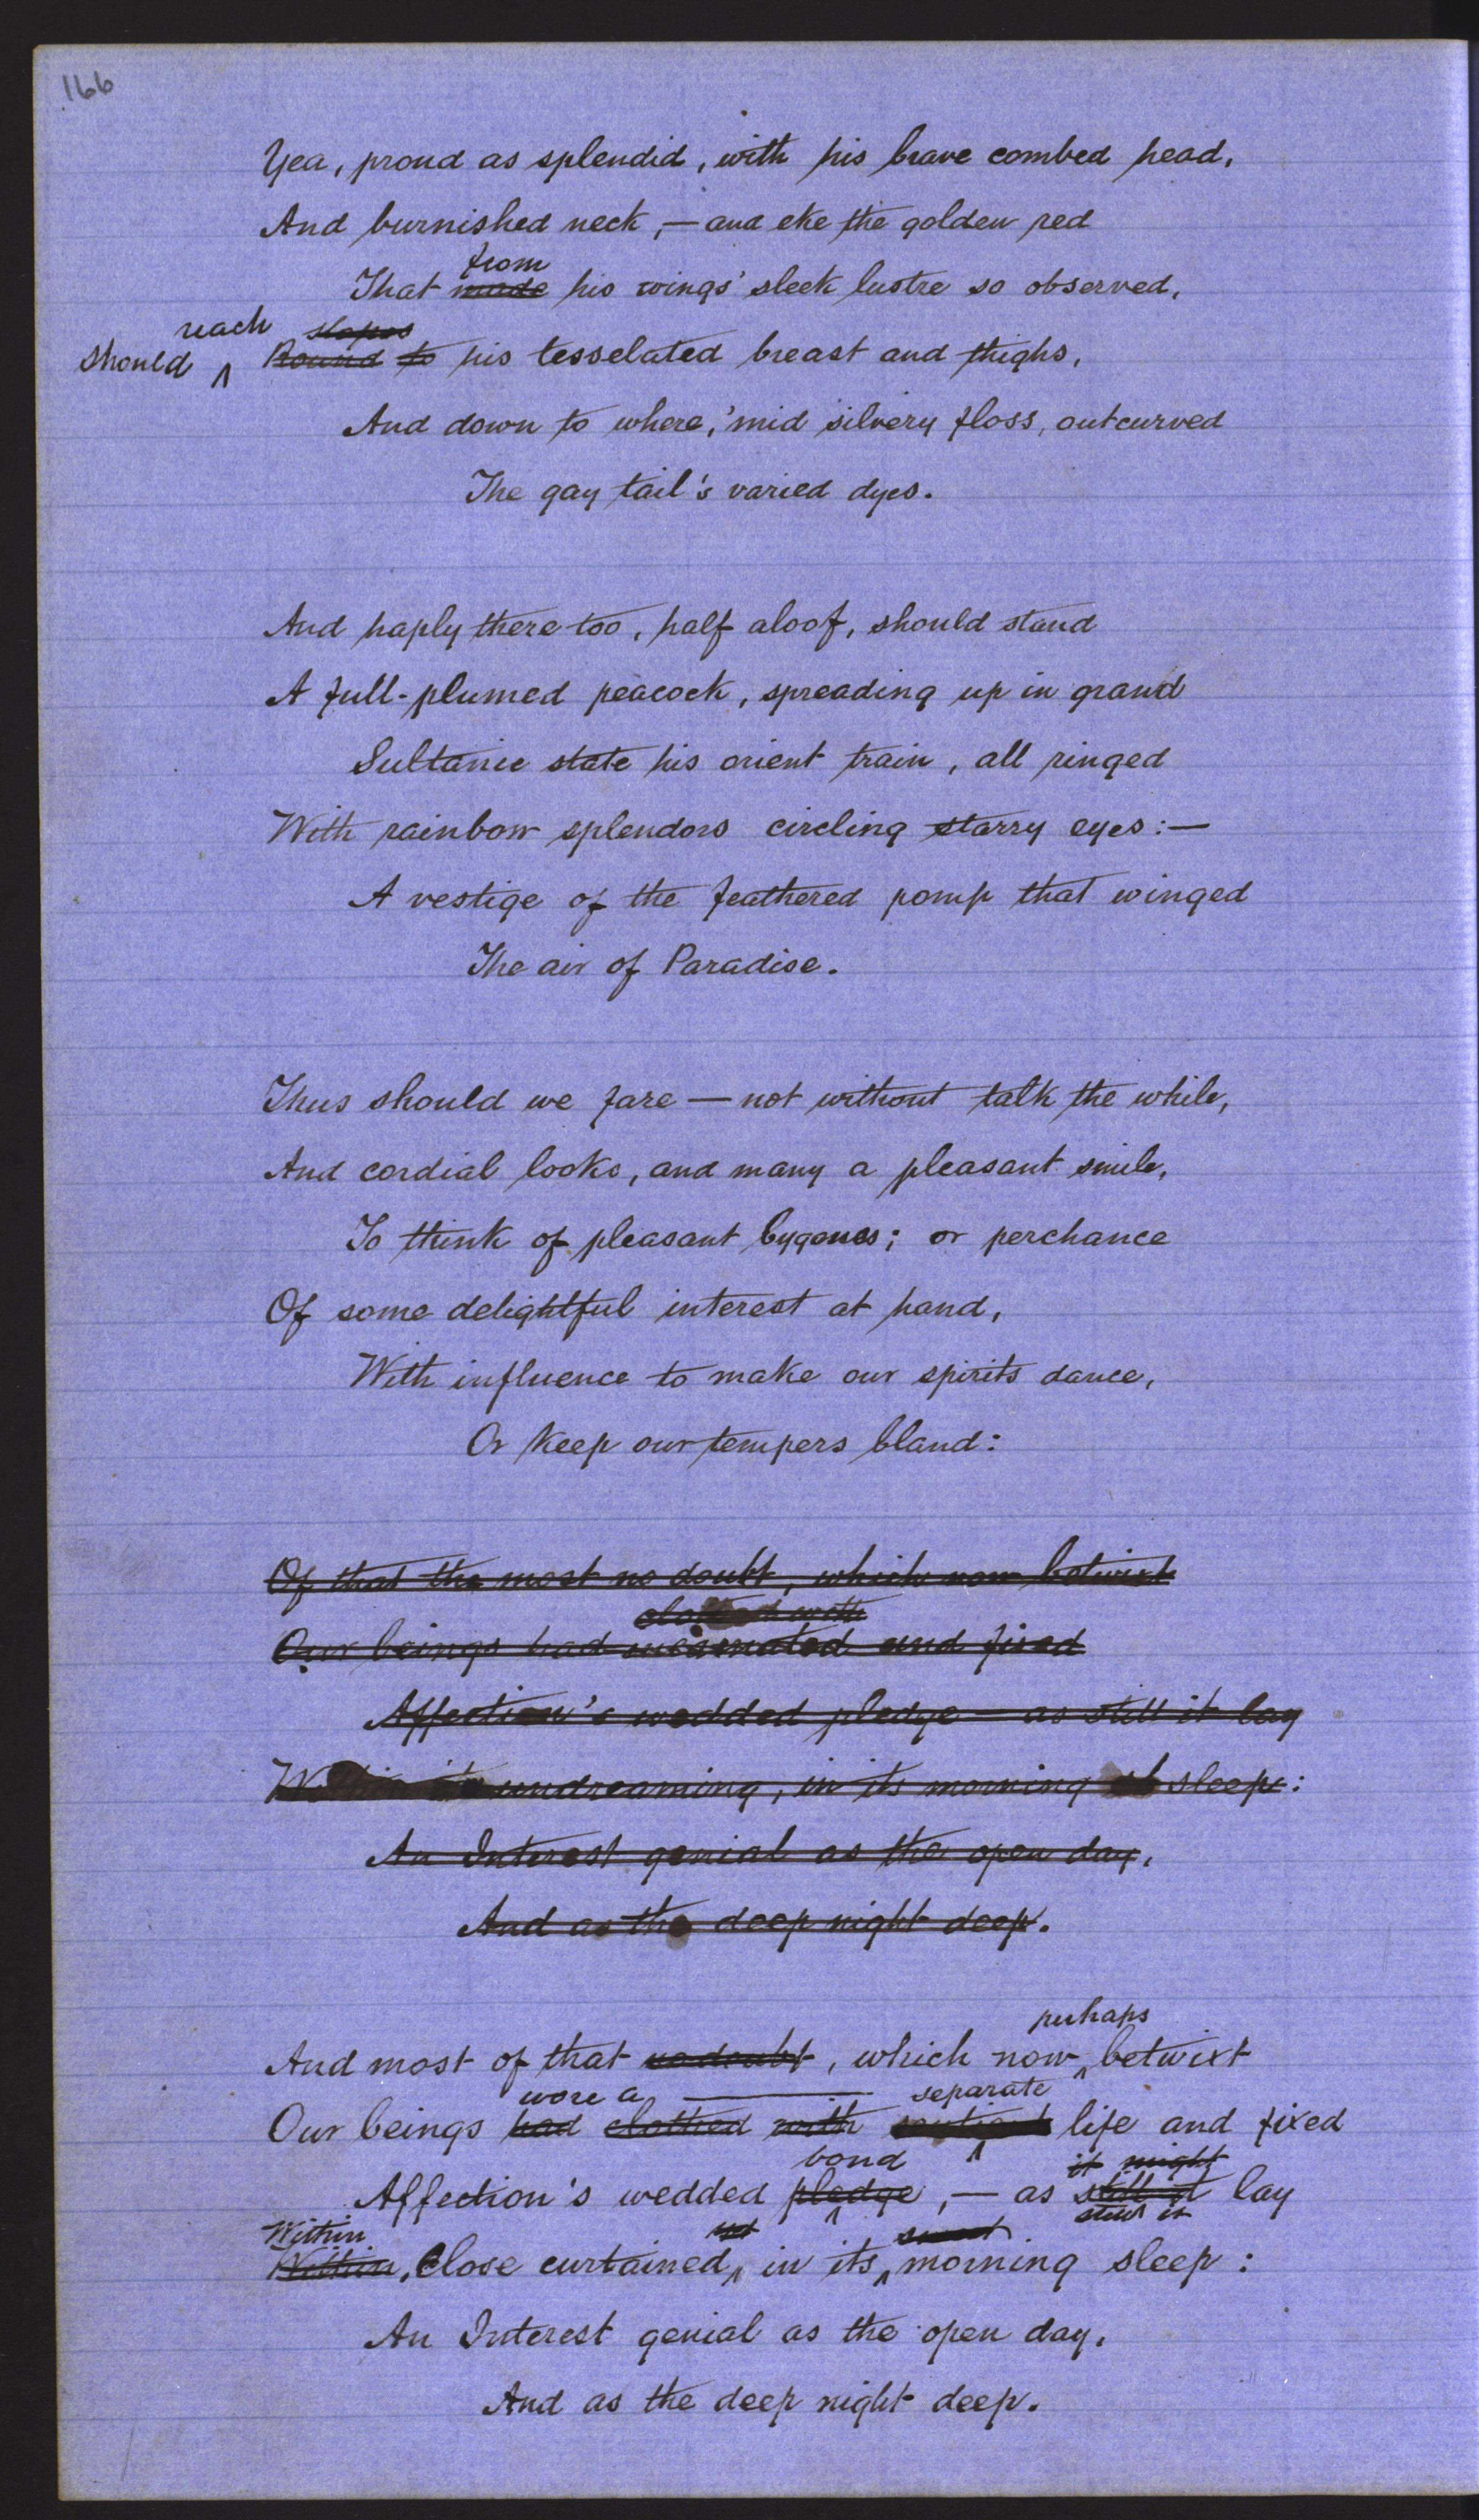 166
Yea, proud as splendid, with his brave combed head,
And burnished neck, — and eke the golden red
from
That made his wings' sleek lustre so observed,
reach slopes
should ^ Round to his tesselated breast and thighs,
And down to where, 'mid silvery floss, outcurved
The gay tail's varied dyes.
And haply there too, half aloof, should stand
A full-plumed peacock, spreading up in grand
Sultanic state his orient train, all ringed
With rainbow splendors circling starry eyes: —
A vestige of the feathered pomp that winged
The air of Paradise.
Thus should we fare — not without talk the while,
And cordial looks, and many a pleasant smile,
To think of pleasant bygones; or perchance
Of some delightful interest at hand,
With influence to make our spirits dance,
Or keep our tempers bland:
Of that the most no doubt, which now betwixt
clothed with
Our beings had incarnated and fixed
Affection's wedded pledge — as still it lay
Within its undreaming, in its morning sleep:
An Interest genial as the open day,
And as the deep night deep.
perhaps
And most of that no doubt, which now ^ betwixt
wore a — separate
Our beings had clothed with sentient ^ life and fixed
bond it might
Affection's wedded pledge, — as still it lay
still it
Within yet sweet
Within, Close curtained, ^ in its ^ morning sleep:
An Interest genial as the open day,
And as the deep night deep.